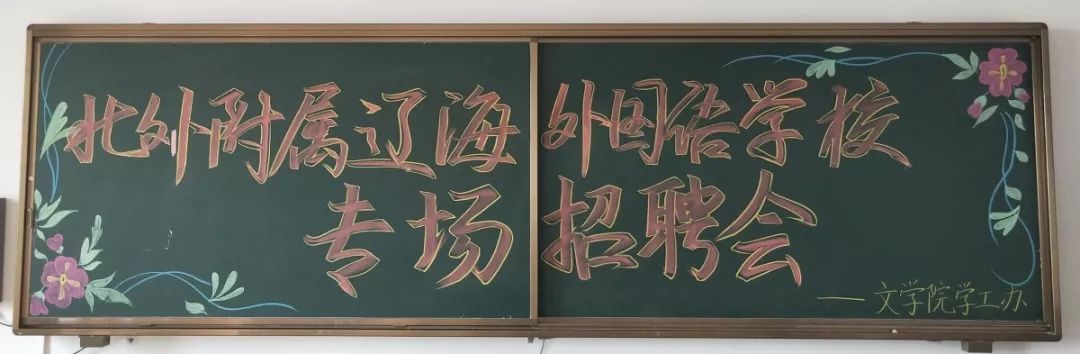 北外附属辽海外国语学校
专场招聘会
——文学院学工办